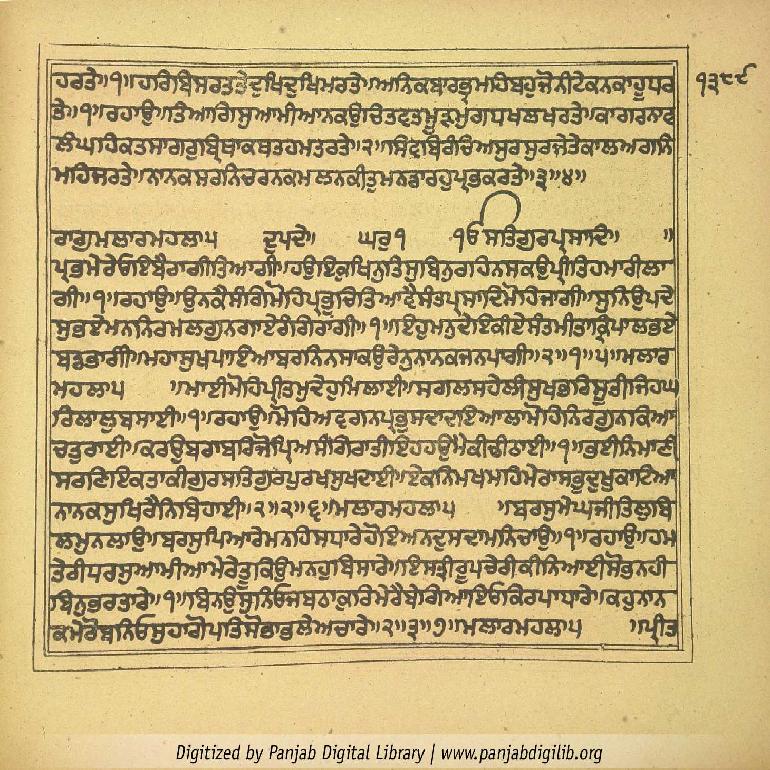 ਹਰਤੇ॥੧॥ਹਰਿਬਿਸਰਤਤੇਦੁਖਿਦੁਖਿਮਰਤੇ॥ਅਨਿਕਬਾਰਭ੍ਰਮਹਿਬਹੁਜੋਨੀਟੇਕਨਕਾਹੂਧਰ
ਤੇ॥੧॥ਰਹਾਉ॥ਤਿਆਗੇਸੁਆਮੀਆਨਕਉਚਿਤਵਤਮੂੜਮੁਗਧਖਲਖਰਤੇ॥ਕਾਗਰਨਾਵ
ਲੰਘਾਹਿਕਤਸਾਗਰੁਬ੍ਰਿਥਾਕਥਤਹਮਤਰਤੇ॥੨॥ਸਿਵਬਿਰੰਚਿਅਸੁਰਸੁਰਜੇਤੇਕਾਲਅਗਨਿ
ਮਹਿਜਰਤੇ॥ਨਾਨਕਸਰਨਿਚਰਨਕਮਲਨਕੀਤੁਮਨਡਾਰਹੁਪ੍ਰਭਕਰਤੇ॥੩॥੪॥
ਰਾਗੁਮਲਾਰਮਹਲਾ੫ ਦੁਪਦੇ॥ ਘਰੁ੧ ੴਸਤਿਗੁਰਪ੍ਰਸਾਦਿ॥ ॥
ਪ੍ਰਭਮੇਰੇਓਇਬੈਰਾਗੀਤਿਆਗੀ॥ਹਉਇਕੁਖਿਨੁਤਿਸੁਬਿਨੁਰਹਿਨਸਕਉਪ੍ਰੀਤਿਹਮਾਰੀਲਾ
ਗੀ॥੧॥ਰਹਾਉ॥ਉਨਕੈਸੰਗਿਮੋਹਿਪ੍ਰਭੁਚਿਤਿਆਵੈਸੰਤਪ੍ਰਸਾਦਿਮੋਹਿਜਾਗੀ॥ਸੁਨਿਉਪਦੇ
ਸੁਭਏਮਨਨਿਰਮਲਗੁਨਗਾਏਰੰਗਿਰਾਂਗੀ॥੧॥ਇਹੁਮਨੁਦੇਇਕੀਏਸੰਤਮੀਤਾਕ੍ਰਿਪਾਲਭਏ
ਬਡਭਾਗੀ॥ਮਹਾਸੁਖਪਾਇਆਬਰਨਿਨਸਾਕਉਰੇਨੁਨਾਨਕਜਨਪਾਗੀ॥੨॥੧॥੫॥ਮਲਾਰ
ਮਹਲਾ੫ ॥ਮਾਈਮੋਹਿਪ੍ਰੀਤਮੁਦੇਹੁਮਿਲਾਈ॥ਸਗਲਸਹੇਲੀਸੁਖਭਰਿਸੂਤੀਜਿਹਘ
ਰਿਲਾਲੁਬਸਾਈ॥੧॥ਰਹਾਉ॥ਮੋਹਿਅਵਗਨਪ੍ਰਭੁਸਦਾਦਇਆਲਾਮੋਹਿਨਿਰਗੁਨਕਿਆ
ਚਤੁਰਾਈ॥ਕਰਉਬਰਾਬਰਿਜੋਪ੍ਰਿਅਸੰਗਿਰਾਤੀਇਹਹਉਮੈਕੀਢੀਠਾਈ॥੧॥ਭਈਨਿਮਾਣੀ
ਸਰਣਿਇਕਤਾਕੀਗੁਰਸਤਿਗੁਰਪੁਰਖਸੁਖਦਾਈ॥ਏਕਨਿਮਖਮਹਿਮੇਰਾਸਭੁਦੁਖੁਕਾਟਿਆ
ਨਾਨਕਸੁਖਿਰੈਨਿਬਿਹਾਈ॥੨॥੨॥੬॥ਮਲਾਰਮਹਲਾ੫ ॥ਬਰਸੁਮੇਘਜੀਤਿਲੁਬਿ
ਲਮੁਨਲਾਉ॥ਬਰਸੁਪਿਆਰੇਮਨਹਿਸਧਾਰੇਹੋਇਅਨਦੁਸਦਾਮਨਿਚਾਉ॥੧॥ਰਹਾਉ॥ਹਮ
ਤੇਰੀਧਰਸੁਆਮੀਆਮੇਰੇਤੂਕਿਉਮਨਹੁਬਿਸਾਰੇ॥ਇਸਤ੍ਰੀਰੂਪਚੇਰੀਕੀਨਿਆਈਸੋਭਨਹੀ
ਬਿਨੁਭਰਤਾਰੇ॥੧॥ਬਿਨਉਸੁਨਿਓਜਬਠਾਕੁਰਮੇਰੈਬੇਗਿਆਇਓਕਿਰਪਾਧਾਰੇ॥ਕਹੁਨਾਨ
ਕਮੇਰੋਬਨਿਓਸੁਹਾਗੋਪਤਿਸੋਭਾਭਲੇਅਚਾਰੇ॥੨॥੩॥੭॥ਮਲਾਰਮਹਲਾ੫ ॥ਪ੍ਰੀਤ
੧੩੮੯
Digitized by Panjab Digital Library | www.panjabdigilib.org